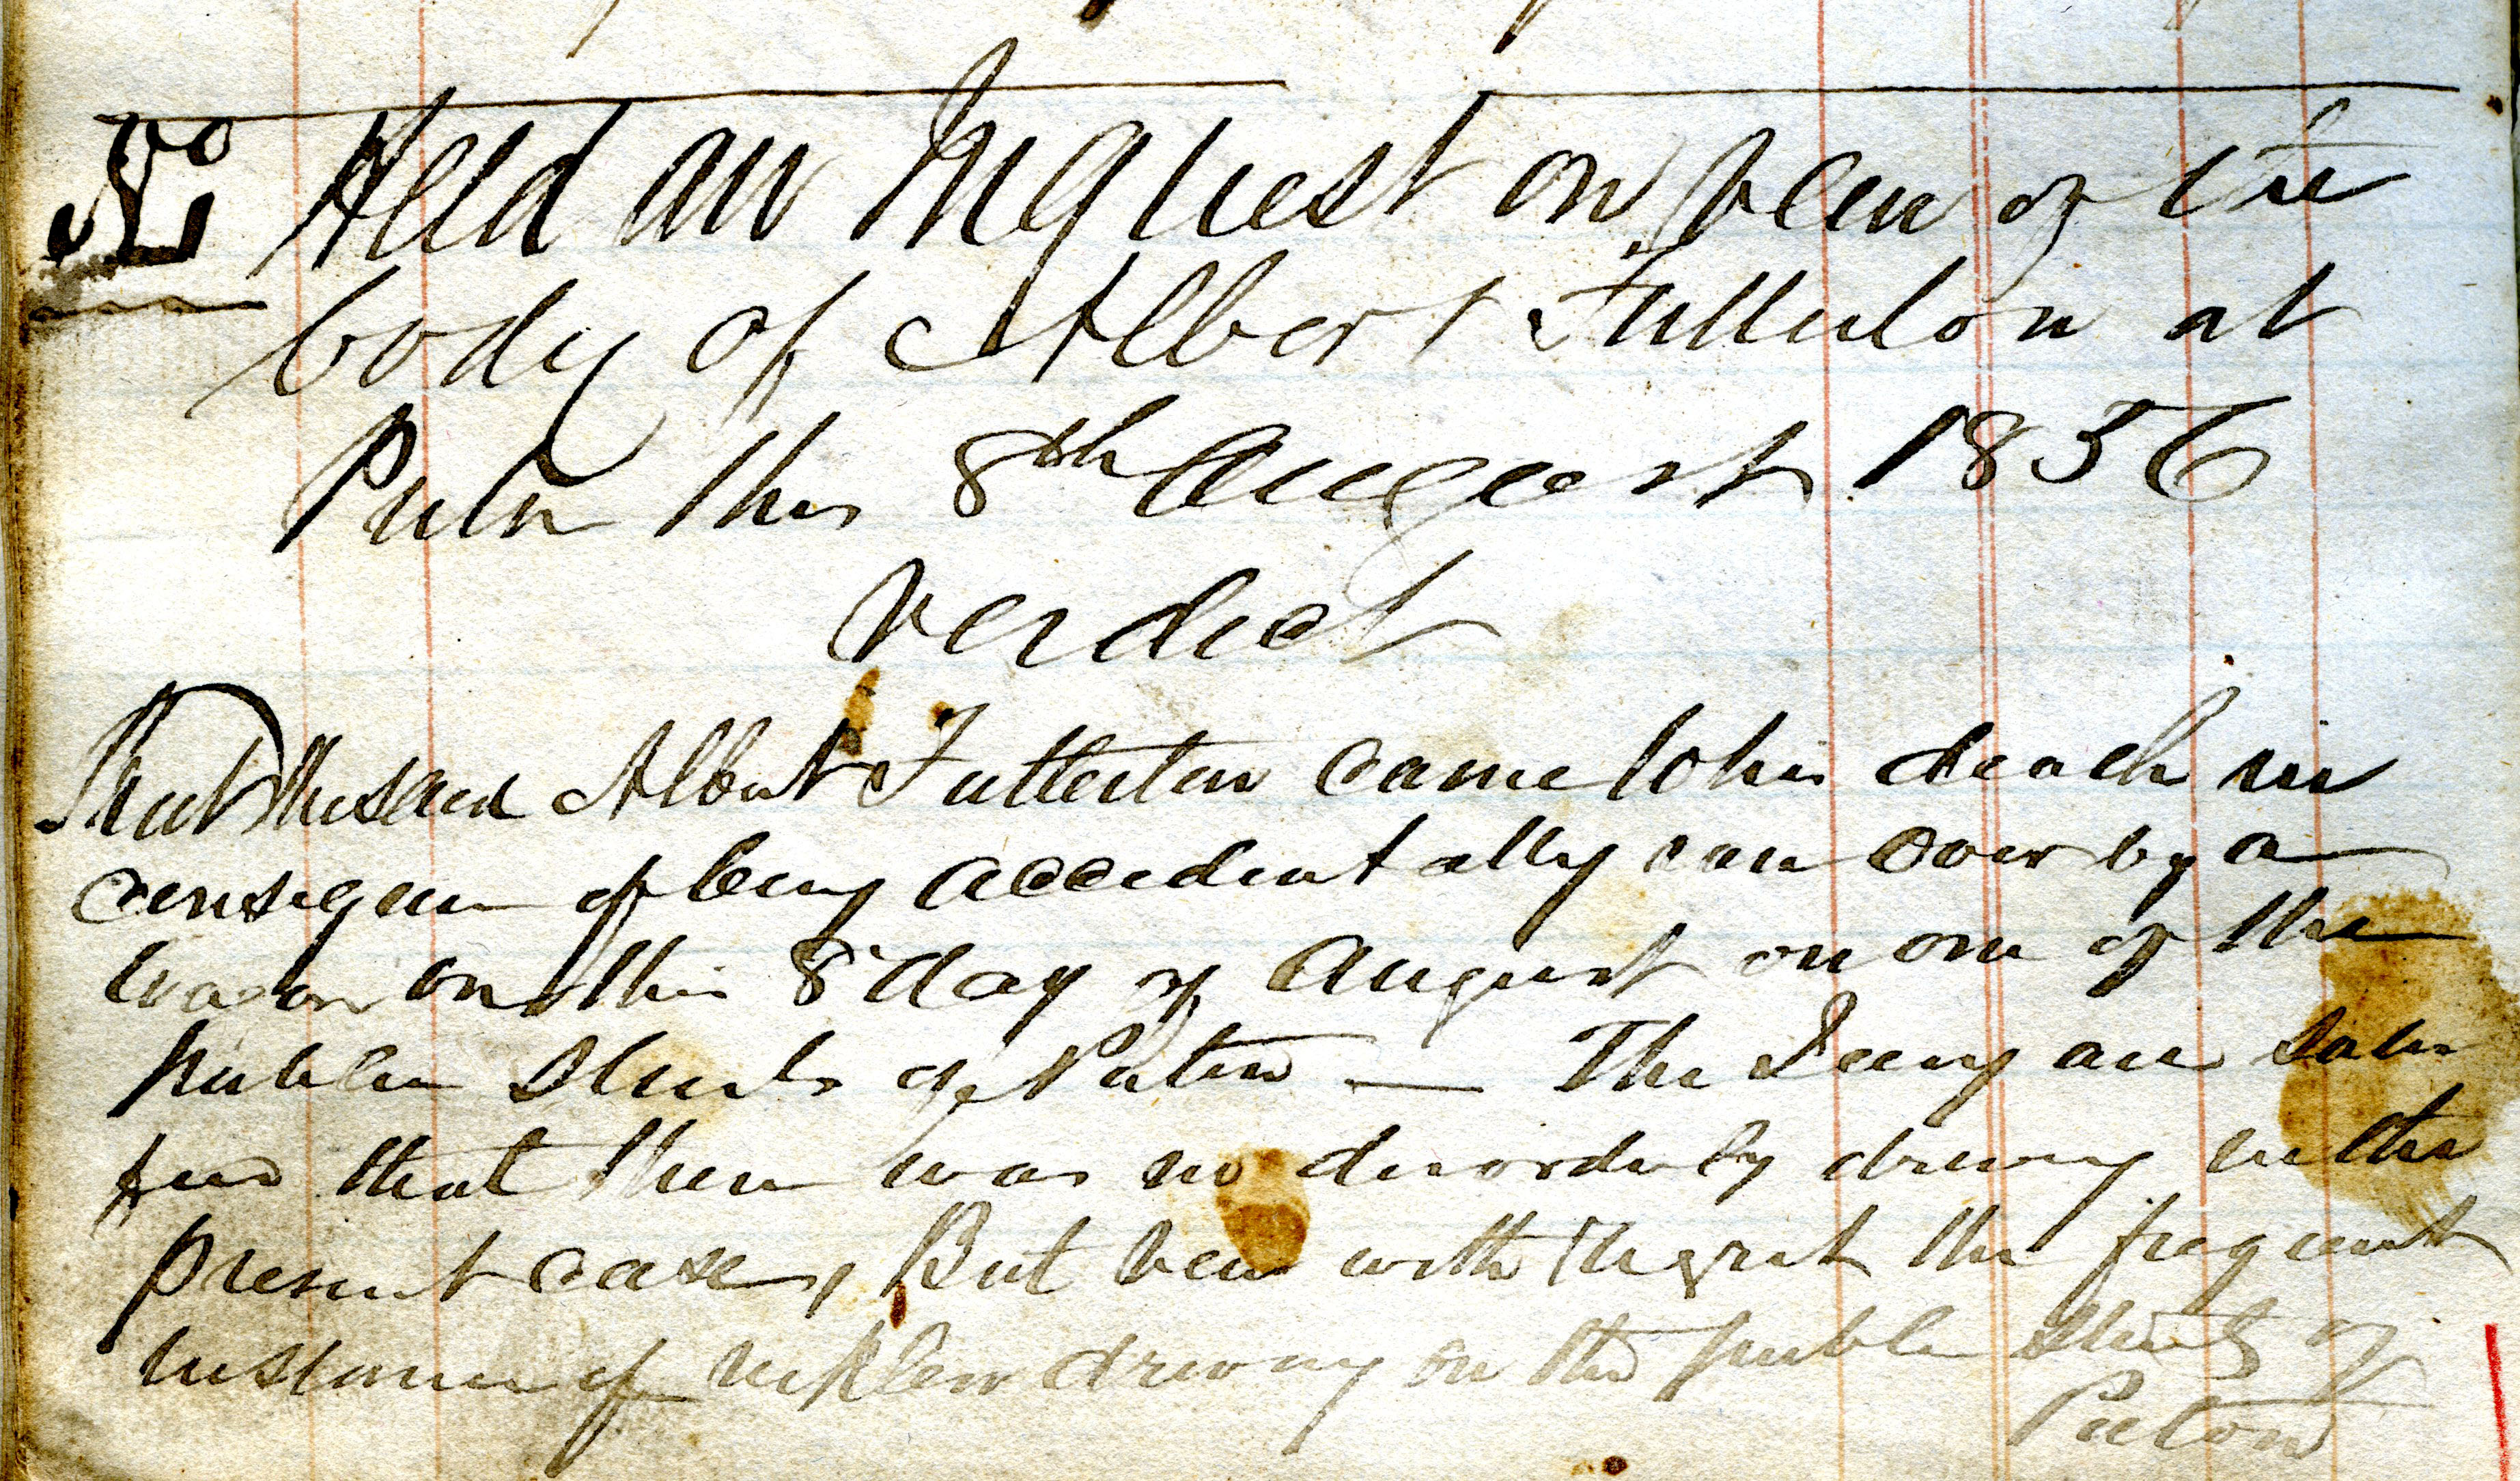 Held an Inquest on view of the
body of Albert Fullerton at
Picton this 8th August 1856
Verdict
That the said Albert Fullerton came to his death in
consequence of being accidentally run over by a
wagon on this 8 day of August on one of the
public streets of Picton — The Jury are satis
fied that there was no disorderly driving in the
present case, But view with regret the frequent
instances of reckless driving on the public streets of
Picton